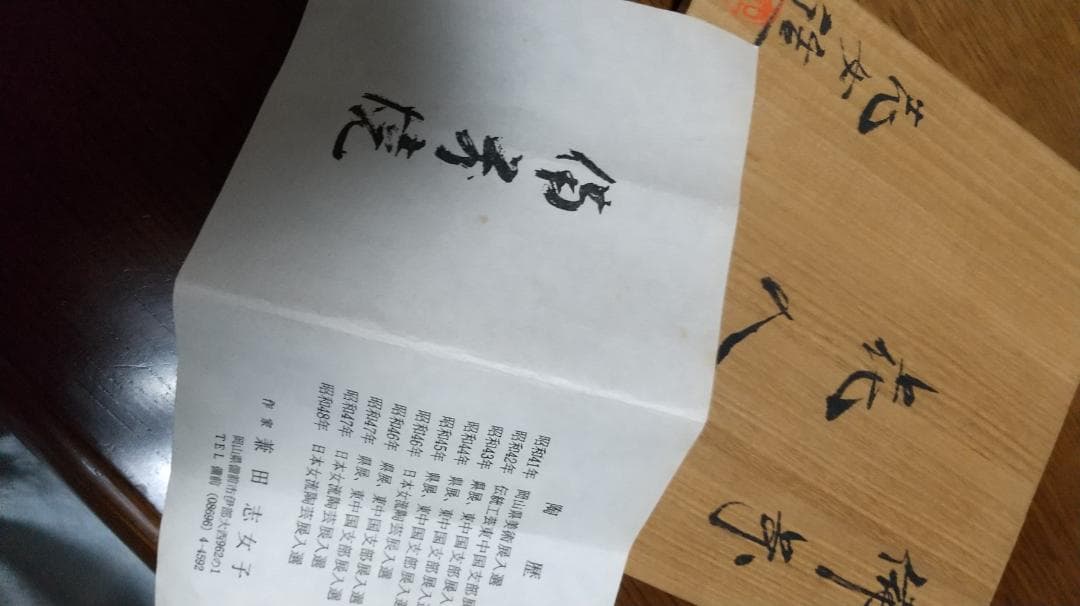 備前焼
陶歴
昭和41年 岡山県美術展入選
昭和42年 伝統工芸東中国支部展
昭和43年 県展、東中国支部展入
昭和44年 県展、東中国支部展入
昭和45年 県展、東中国支部展入
昭和46年 日本女流陶芸展入選
昭和46年 県展、東中国支部展入
昭和47年 県展、東中国支部展入選
昭和47年 日本女流陶芸展入選
昭和48年 日本女流陶芸展入選
作家 兼田志女子
岡山県備前市伊部大西962の1
TEL 備前 (08696) 4-4592
備前
花入